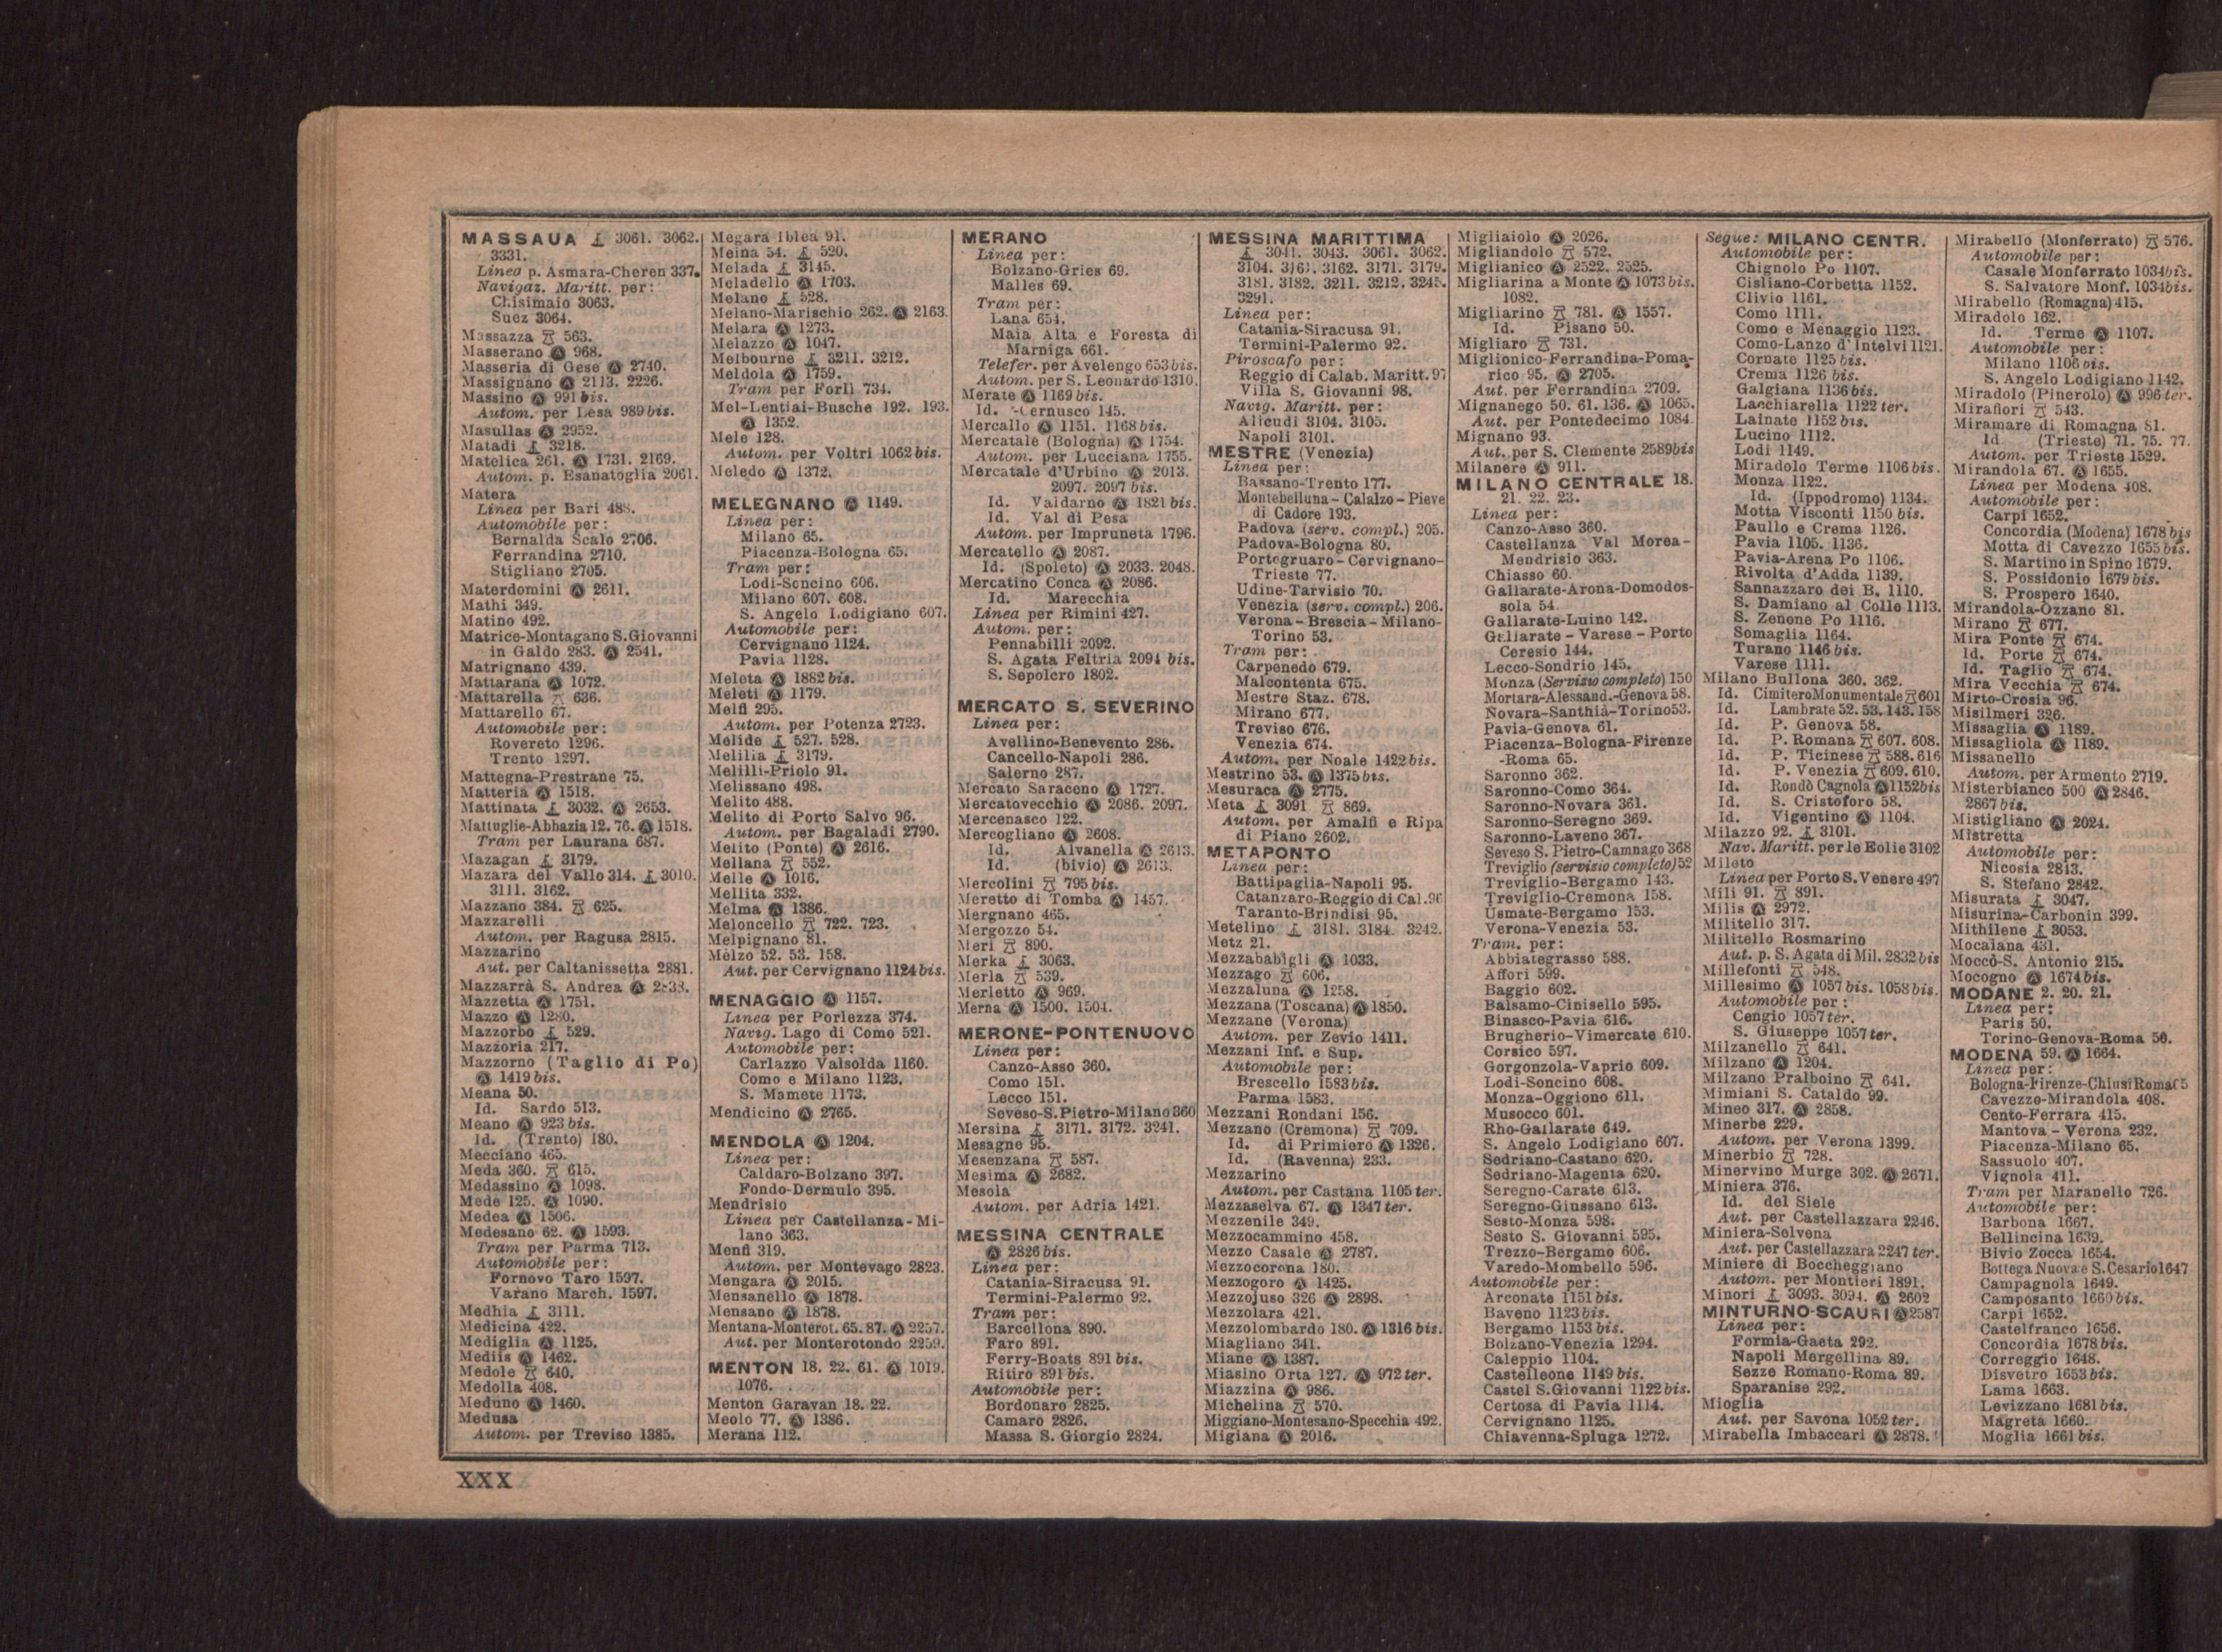 MASSAUA 3061. 3062.
3331.
Linea p. Asmara-Cheren 337.
Navigaz. Maritt. per:
Chisimaio 3063.
Suez 3064.
Massazza 563.
Masserano Ⓐ 968.
Masseria di Gese Ⓐ 2740.
Massignano Ⓐ 2113. 2226.
Massino Ⓐ 991 bis.
Autom. per Lesa 989 bis.
Masullas Ⓐ 2952.
Matadi 3218.
Matelica 261. Ⓐ 1731. 2169.
Autom. p. Esanatoglia 2061.
Matera
Linea per Bari 488.
Automobile per:
Bernalda Scalo 2706.
Ferrandina 2710.
Stigliano 2705.
Materdomini Ⓐ 2611.
Mathi 349.
Matino 492.
Matrice-Montagano S.Giovanni
in Galdo 283. Ⓐ 2541.
Matrignano 439.
Mattarana Ⓐ 1072.
Mattarella 636.
Mattarello 67.
Automobile per:
Rovereto 1296.
Trento 1297.
Mattegna-Prestrane 75.
Matteria Ⓐ 1518.
Mattinata 3032. Ⓐ 2653.
Mattuglie-Abbazia 12. 76. Ⓐ 1518.
Tram per Laurana 687.
Mazagan 3179.
Mazara del Vallo 314. 3010.
3111. 3162.
Mazzano 384. 625.
Mazzarelli
Autom. per Ragusa 2815.
Mazzarino
Aut. per Caltanissetta 2881.
Mazzarrà S. Andrea Ⓐ
Mazzetta Ⓐ 1751.
Mazzo Ⓐ 1280.
Mazzorbo 529.
Mazzoria 217.
Mazzorno (Taglio di Po)
Ⓐ 1419 bis.
Meana 50.
Id. Sardo 513.
Meano Ⓐ 923 bis.
Id. (Trento) 180.
Mecciano 465.
Meda 360. 615.
Medassino Ⓐ 1098.
Mede 125. Ⓐ 1090.
Medea Ⓐ 1506.
Medesano 62. Ⓐ 1593.
Tram per Parma 713.
Automobile per:
Fornovo Taro 1597.
Varano March. 1597.
Medhia 3111.
Medicina 422.
Mediglia Ⓐ 1125.
Mediis Ⓐ 1462.
Medole 640.
Medolla 408.
Meduno Ⓐ 1460.
Medusa
Autom. per Treviso 1385.
Megara Iblea 91.
Meina 54. 520.
Melada 3145.
Meladello Ⓐ 1703.
Melano 528.
Melano-Marischio 262. Ⓐ 2163.
Melara Ⓐ 1273.
Melazzo Ⓐ 1047.
Melbourne 3211. 3212.
Meldola Ⓐ 1759.
Tram per Forlì 734.
Mel-Lentiai-Busche 192. 193.
Ⓐ 1352.
Mele 128.
Autom. per Voltri 1062 bis.
Meledo Ⓐ 1372.
MELEGNANO Ⓐ 1149.
Linea per:
Milano 65.
Piacenza-Bologna 65.
Tram per:
Lodi-Soncino 606.
Milano 607. 608.
S. Angelo Lodigiano 607.
Automobile per:
Cervignano 1124.
Pavia 1128.
Meleta Ⓐ 1882 bis.
Meleti Ⓐ 1179.
Melfi 295.
Autom. per Potenza 2723.
Melide 527. 528.
Melilia 3179.
Melilli-Priolo 91.
Melissano 498.
Melito 488.
Melito di Porto Salvo 96.
Autom. per Bagaladi 2790.
Melito (Ponte) Ⓐ 2616.
Mellana 552.
Melle Ⓐ 1016.
Mellita 332.
Melma Ⓐ 1386.
Meloncello 722. 723.
Melpignano 81.
Melzo 52. 53. 158.
Aut. per Cervignano 1124 bis.
MENAGGIO Ⓐ 1157.
Linea per Porlezza 374.
Navig. Lago di Como 521.
Automobile per:
Carlazzo Valsolda 1160.
Como e Milano 1123.
S. Mamete 1173.
Mendicino Ⓐ 2765.
MENDOLA Ⓐ 1204.
Linea per:
Caldaro-Bolzano 397.
Fondo-Dermulo 395.
Mendrisio
Linea per Castellanza-Mi-
lano 363.
Menfi 319.
Autom. per Montevago 2823.
Mengara Ⓐ 2015.
Mensanello Ⓐ 1878.
Mensano Ⓐ 1878.
Mentana-Monterot. 65. 87. Ⓐ 2257.
Aut. per Monterotondo 2259.
MENTON 18. 22. 61. Ⓐ 1019.
1076.
Menton Garavan 18. 22.
Meolo 77. Ⓐ 1386.
Merana 112.
MERANO
Linea per:
Bolzano-Gries 69.
Malles 69.
Tram per:
Lana 654.
Maia Alta e Foresta di
Marniga 661.
Telefer. per Avelengo 653 bis.
Autom. per S. Leonardo 1310.
Merate Ⓐ 1169 bis.
Id. -Cernusco 145.
Mercallo Ⓐ 1151. 1168 bis.
Mercatale (Bologna) Ⓐ 1754.
Autom. per Lucciana 1755.
Mercatale d'Urbino Ⓐ 2013.
2097. 2097 bis.
Id. Valdarno Ⓐ 1821 bis.
Id. Val di Pesa
Autom. per Impruneta 1796.
Mercatello Ⓐ 2087.
Id. (Spoleto) Ⓐ 2033. 2048.
Mercatino Conca Ⓐ 2086.
Id. Marecchia
Linea per Rimini 427.
Autom. per:
Pennabilli 2092.
S. Agata Feltria 2094 bis.
S. Sepolcro 1802.
MERCATO S. SEVERINO
Linea per:
Avellino-Benevento 286.
Cancello-Napoli 286.
Salerno 287.
Mercato Saraceno Ⓐ 1727.
Mercatovecchio Ⓐ 2086. 2097.
Mercenasco 122.
Mercogliano Ⓐ 2608.
Id. Alvanella Ⓐ 2613.
Id. (bivio) Ⓐ 2613.
Mercolini 795 bis.
Meretto di Tomba Ⓐ 1457.
Mergnano 465.
Mergozzo 54.
Merì 890.
Merka 3063.
Merla 539.
Merletto Ⓐ 969.
Merna Ⓐ 1500. 1504.
MERONE-PONTENUOVO
Linea per:
Canzo-Asso 360.
Como 151.
Lecco 151.
Seveso-S.Pietro-Milano 360
Mersina 3171. 3172. 3241.
Mesagne 95.
Mesenzana 587.
Mesima Ⓐ 2682.
Mesola
Autom. per Adria 1421.
MESSINA CENTRALE
Ⓐ 2826 bis.
Linea per:
Catania-Siracusa 91.
Termini-Palermo 92.
Tram per:
Barcellona 890.
Faro 891.
Ferry-Boats 891 bis.
Ritiro 891 bis.
Automobile per:
Bordonaro 2825.
Camaro 2826.
Massa S. Giorgio 2824.
MESSINA MARITTIMA
3041. 3043. 3061. 3062.
3104. 3161. 3162. 3171. 3179.
3181. 3182. 3211. 3212. 3245.
3291.
Linea per:
Catania-Siracusa 91.
Termini-Palermo 92.
Piroscafo per:
Reggio di Calab. Maritt. 97
Villa S. Giovanni 98.
Navig. Maritt. per:
Alicudi 3104. 3105.
Napoli 3101.
MESTRE (Venezia)
Linea per:
Bassano-Trento 177.
Montebelluna-Calalzo-Pieve
di Cadore 193.
Padova (serv. compl.) 205.
Padova-Bologna 80.
Portogruaro-Cervignano-
Trieste 77.
Udine-Tarvisio 70.
Venezia (serv. compl.) 206.
Verona-Brescia-Milano-
Torino 53.
Tram per:
Carpenedo 679.
Malcontenta 675.
Mestre Staz. 678.
Mirano 677.
Treviso 676.
Venezia 674.
Autom. per Noale 1422 bis.
Mestrino 53. Ⓐ 1375 bis.
Mesuraca Ⓐ 2775.
Meta 3091 869.
Autom. per Amalfi e Ripa
di Piano 2602.
METAPONTO
Linea per:
Battipaglia-Napoli 95.
Catanzaro-Reggio di Cal. 96
Taranto-Brindisi 95.
Metelino 3181. 3184. 3242.
Metz 21.
Mezzababigli Ⓐ 1033.
Mezzago 606.
Mezzaluna Ⓐ 1258.
Mezzana (Toscana) Ⓐ 1850.
Mezzane (Verona)
Autom. per Zevio 1411.
Mezzani Inf. e Sup.
Automobile per:
Brescello 1583 bis.
Parma 1583.
Mezzani Rondani 156.
Mezzano (Cremona) 709.
Id. di Primiero Ⓐ 1326.
Id. (Ravenna) 233.
Mezzarino
Autom. per Castana 1105 ter.
Mezzaselva 67. Ⓐ 1347 ter.
Mezzenile 349.
Mezzocammino 458.
Mezzo Casale Ⓐ 2787.
Mezzocorona 180.
Mezzogoro Ⓐ 1425.
Mezzojuso 326 Ⓐ 2898.
Mezzolara 421.
Mezzolombardo 180. Ⓐ 1316 bis.
Miagliano 341.
Miane Ⓐ 1387.
Miasino Orta 127. Ⓐ 972 ter.
Miazzina Ⓐ 986.
Michelina 570.
Miggiano-Montesano-Specchia 492.
Migiana Ⓐ 2016.
Migliaiolo Ⓐ 2026.
Migliandolo 572.
Miglianico Ⓐ 2522. 2525.
Migliarina a Monte Ⓐ 1073 bis.
1082.
Migliarino 781. Ⓐ 1557.
Id. Pisano 50.
Migliaro 731.
Miglionico-Ferrandina-Poma-
rico 95. Ⓐ 2705.
Aut. per Ferrandina 2709.
Mignanego 50. 61. 136. Ⓐ 1065.
Aut. per Pontedecimo 1084.
Mignano 93.
Aut. per S. Clemente 2589bis
Milanere Ⓐ 911.
MILANO CENTRALE 18.
21. 22. 23.
Linea per:
Canzo-Asso 360.
Castellanza Val Morea-
Mendrisio 363.
Chiasso 60.
Gallarate-Arona-Domodos-
sola 54.
Gallarate-Luino 142.
Gallarate-Varese-Porto
Ceresio 144.
Lecco-Sondrio 145.
Monza (Servizio completo) 150
Mortara-Alessand.-Genova 58.
Novara-Santhià-Torino 53.
Pavia-Genova 61.
Piacenza-Bologna-Firenze
-Roma 65.
Saronno 362.
Saronno-Como 364.
Saronno-Novara 361.
Saronno-Seregno 369.
Saronno-Laveno 367.
Seveso S. Pietro-Camnago 368
Treviglio (servizio completo) 52
Treviglio-Bergamo 143.
Treviglio-Cremona 158.
Usmate-Bergamo 153.
Verona-Venezia 53.
Tram. per:
Abbiategrasso 588.
Affori 599.
Baggio 602.
Balsamo-Cinisello 595.
Binasco-Pavia 616.
Brugherio-Vimercate 610.
Corsico 597.
Gorgonzola-Vaprio 609.
Lodi-Soncino 608.
Monza-Oggiono 611.
Musocco 601.
Rho-Gallarate 649.
S. Angelo Lodigiano 607.
Sedriano-Castano 620.
Sedriano-Magenta 620.
Seregno-Carate 613.
Seregno-Giussano 613.
Sesto-Monza 598.
Sesto S. Giovanni 595.
Trezzo-Bergamo 606.
Varedo-Mombello 596.
Automobile per:
Arconate 1151 bis.
Baveno 1123 bis.
Bergamo 1153 bis.
Bolzano-Venezia 1294.
Caleppio 1104.
Castelleone 1149 bis.
Castel S.Giovanni 1122 bis.
Certosa di Pavia 1114.
Cervignano 1125.
Chiavenna-Spluga 1272.
Segue: MILANO CENTR.
Automobile per:
Chignolo Po 1107.
Cisliano-Corbetta 1152.
Clivio 1161.
Como 1111.
Como e Menaggio 1123.
Como-Lanzo d'Intelvi 1121.
Cornate 1125 bis.
Crema 1126 bis.
Galgiana 1136 bis.
Lacchiarella 1122 ter.
Lainate 1152 bis.
Lucino 1112.
Lodi 1149.
Miradolo Terme 1106 bis.
Monza 1122.
Id. (Ippodromo) 1134.
Motta Visconti 1150 bis.
Paullo e Crema 1126.
Pavia 1105. 1136.
Pavia-Arena Po 1106.
Rivolta d'Adda 1139.
Sannazzaro dei B. 1110.
S. Damiano al Colle 1113.
S. Zenone Po 1116.
Somaglia 1164.
Turano 1146 bis.
Varese 1111.
Milano Bullona 360. 362.
Id. Cimitero Monumentale 601
Id. Lambrate 52. 53. 143. 158
Id. P. Genova 58.
Id. P. Romana 607. 608.
Id. P. Ticinese 588. 616
Id. P. Venezia 609. 610.
Id. Rondò Cagnola Ⓐ 1152bis
Id. S. Cristoforo 58.
Id. Vigentino Ⓐ 1104.
Milazzo 92. 3101.
Nav. Maritt. per le Eolie 3102
Mileto
Linea per Porto S. Venere 497
Mili 91. 891.
Milis Ⓐ 2972.
Militello 317.
Militello Rosmarino
Aut. p. S. Agata di Mil. 2832 bis
Millefonti 548.
Millesimo Ⓐ 1057 bis. 1058 bis.
Automobile per:
Cengio 1057 ter.
S. Giuseppe 1057 ter.
Milzanello 641.
Milzano Ⓐ 1204.
Milzano Pralboino 641.
Mimiani S. Cataldo 99.
Mineo 317. Ⓐ 2858.
Minerbe 229.
Autom. per Verona 1399.
Minerbio 728.
Minervino Murge 302. Ⓐ 2671.
Miniera 376.
Id. del Siele
Aut. per Castellazzara 2246.
Miniera-Selvena
Aut. per Castellazzara 2247 ter.
Miniere di Boccheggiano
Autom. per Montieri 1891.
Minori 3093. 3094. Ⓐ 2602
MINTURNO-SCAURI Ⓐ 2587
Linea per:
Formia-Gaeta 292.
Napoli Mergellina 89.
Sezze Romano-Roma 89.
Sparanise 292.
Mioglia
Aut. per Savona 1052 ter.
Mirabella Imbaccari Ⓐ 2878.
Mirabello (Monferrato) 576.
Automobile per:
Casale Monferrato 1034bis.
S. Salvatore Monf. 1034bis.
Mirabello (Romagna) 415.
Miradolo 162.
Id. Terme Ⓐ 1107.
Automobile per:
Milano 1106 bis.
S. Angelo Lodigiano 1142.
Miradolo (Pinerolo) Ⓐ 996 ter.
Mirafiori 543.
Miramare di Romagna 81.
Id (Trieste) 71. 75. 77.
Autom. per Trieste 1529.
Mirandola 67. Ⓐ 1655.
Linea per Modena 408.
Automobile per:
Carpi 1652.
Concordia (Modena) 1678 bis
Motta di Cavezzo 1655 bis.
S. Martino in Spino 1679.
S. Possidonio 1679 bis.
S. Prospero 1640.
Mirandola-Ozzano 81.
Mirano 677.
Mira Ponte 674.
Id. Porte 674.
Id. Taglio 674.
Mira Vecchia 674.
Mirto-Crosia 96.
Misilmeri 326.
Missaglia Ⓐ 1189.
Missagliola Ⓐ 1189.
Missanello
Autom. per Armento 2719.
Misterbianco 500 Ⓐ 2846.
2867 bis.
Mistigliano Ⓐ 2024.
Mistretta
Automobile per:
Nicosia 2813.
S. Stefano 2842.
Misurata 3047.
Misurina-Carbonin 399.
Mithilene 3053.
Mocaiana 431.
Moccò-S. Antonio 215.
Mocogno Ⓐ 1674 bis.
MODANE 2. 20. 21.
Linea per:
Paris 50.
Torino-Genova-Roma 50.
MODENA 59. Ⓐ 1664.
Linea per:
Bologna-Firenze-Chiusi Roma 65
Cavezzo-Mirandola 408.
Cento-Ferrara 415.
Mantova-Verona 232.
Piacenza-Milano 65.
Sassuolo 407.
Vignola 411.
Tram per Maranello 726.
Automobile per:
Barbona 1667.
Bellincina 1639.
Bivio Zocca 1654.
Bottega Nuova e S. Cesario 1647
Campagnola 1649.
Camposanto 1660 bis.
Carpi 1652.
Castelfranco 1656.
Concordia 1678 bis.
Correggio 1648.
Disvetro 1653 bis.
Lama 1663.
Levizzano 1681 bis.
Magreta 1660.
Moglia 1661 bis.
XXX